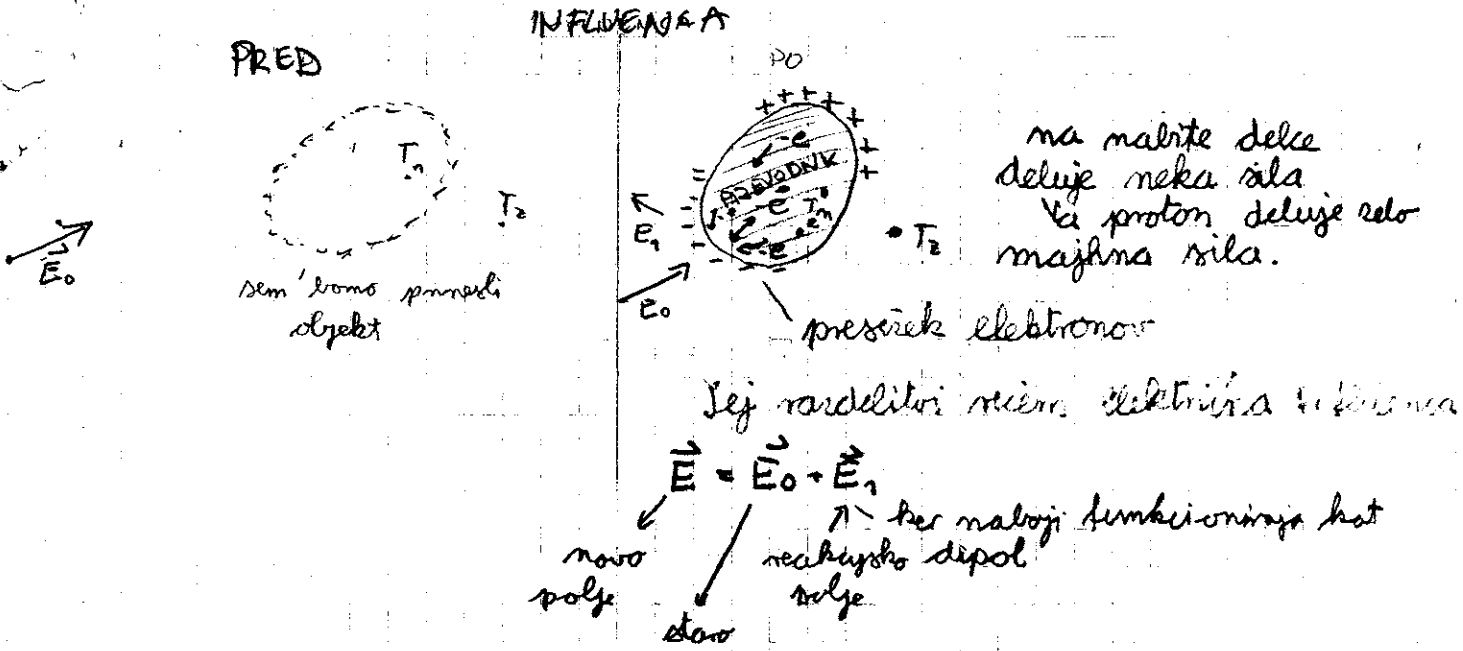 INFLUENCA
PRED
PO
T₁
T₂
E₀
sem bomo prinesli
objekt
+ + + + + + + +
-e
PREVODNIK
-e
T₁
-e
E₁
E₀
T₂
na nabite delce
deluje neka sila
Na proton deluje zelo
majhna sila.
presežek elektronov
Tej razdelitvi rečem električna
E = E₀ + E₁
novo
polje
staro
reakcijsko
polje
ker naboji funkcionirajo kot
dipol